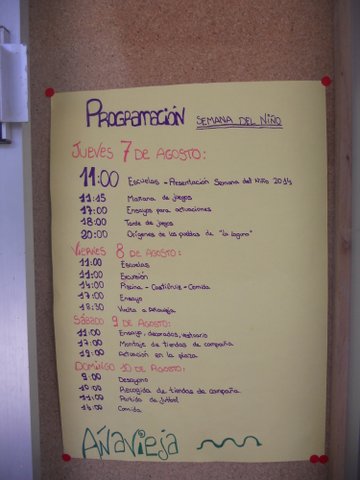 PROGRAMACIÓN SEMANA DEL NIÑO
JUEVES 7 DE AGOSTO:
11:00 Escuelas - Presentación Semana del Niño 2014
11:15 Mañana de juegos
17:00 Ensayos para actuaciones
18:00 Tarde de juegos
20:00 Orígenes de las de "la laguna"
VIERNES 8 DE AGOSTO:
11:00 Escuelas
11:00 Excursión
14:00 Piscina - Castilruiz - Comida
17:00 Ensayo
18:30 Vuelta a Añavieja
SÁBADO 9 DE AGOSTO:
11:00 Ensayo, decorados, vestuario
17:00 Montaje de tiendas de campaña
19:00 Actuación en la plaza
DOMINGO 10 DE AGOSTO:
9:00 Desayuno
10:00 Recogida de tiendas de campaña
11:00 Partido de futbol
14:00 Comida
AÑAVIEJA